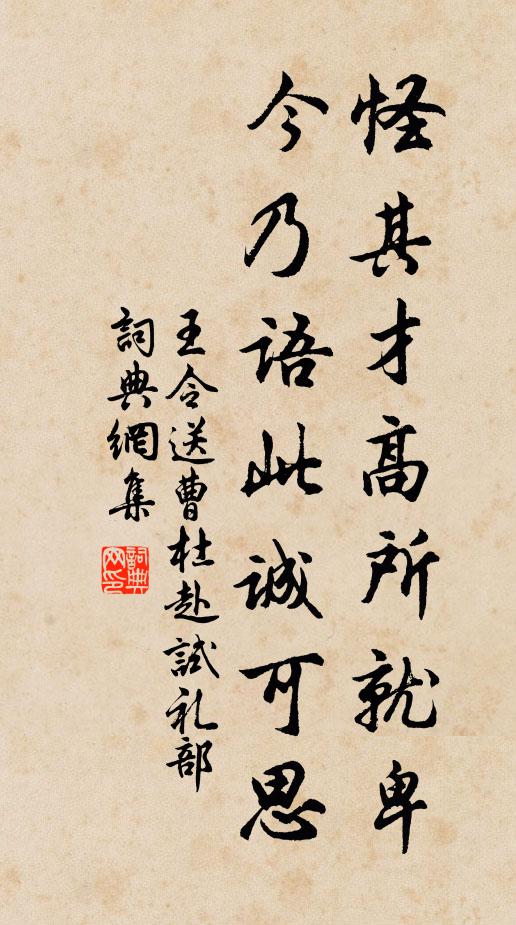 怪其才高所就卑
今乃语此诚可思
王令送曹杜赴試礼部
詞典網集
詞典网印